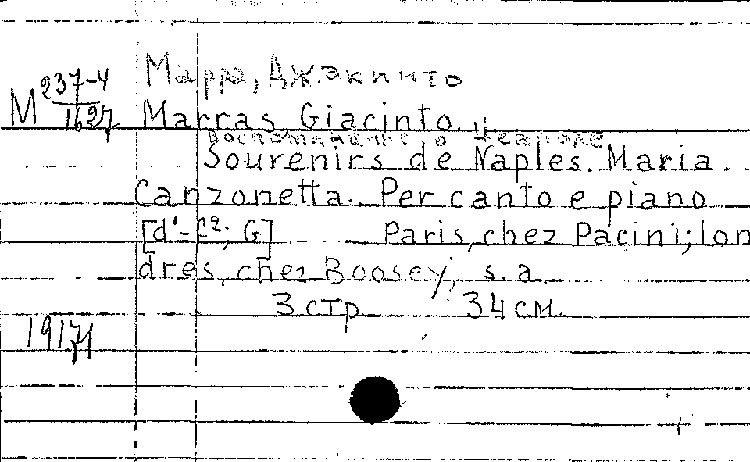 Марра, Джэкинто
M 237-4
1627
Marras Giacinto.
Воспоминание о Неаполе
Sourenirs de Naples. Maria.
Canzonetta. Per canto e piano
[d'-f²; G] Paris, chez Pacini; lon
dres, chez Boosey, s.a.
3 стр 34 см.